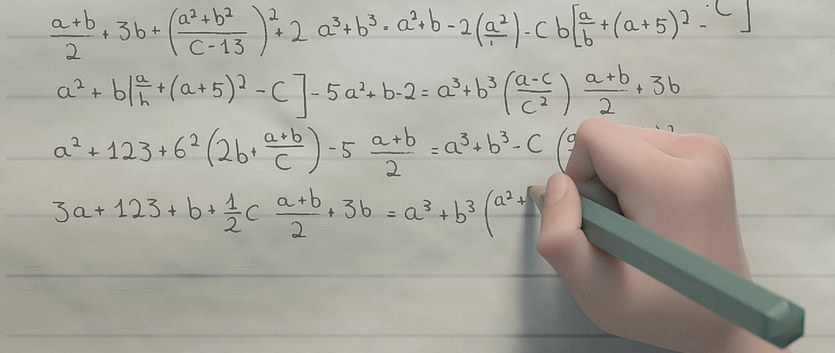 (a+b)/2 + 3b + ((a²+b²)/(C-13))² + 2 a³+b³ - a²+b-2(a²/) - C b[a/b + (a+5)² - C]
a² + b[a/b + (a+5)² - C] - 5a²+b-2 = a³+b³ ((a-c)/c²) (a+b)/2 + 3b
a² + 123 + 6² (2b + (a+b)/C) - 5 (a+b)/2 = a³+b³ - C (
3a + 123 + b + 1/2 c (a+b)/2 + 3b = a³ + b³ (a² +